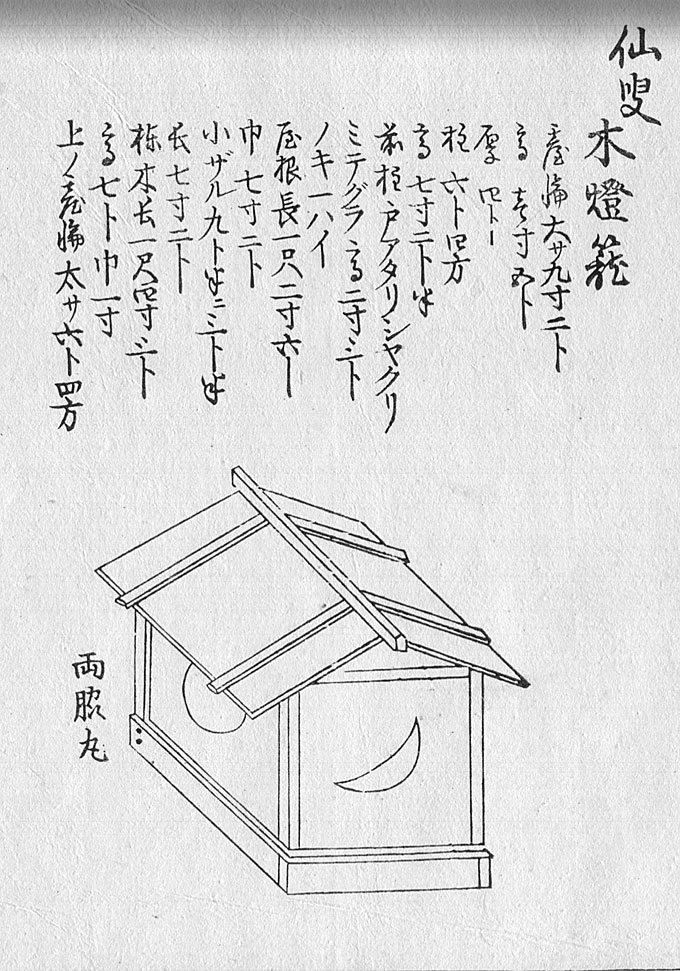 仙叟木燈籠
臺輪大サ九寸二ト
高サ壱寸五ト
厚四ト
柱六ト四方
高七寸二ト半
前柱戸アタリシヤクリ
ミテグラ高二寸三ト
ノキ一ハイ
屋根長一尺二寸六ト
巾七寸二ト
小ザル九ト半ニ三ト半
長七寸二ト
棟木長一尺四寸三ト
高七ト巾一寸
上ノ臺輪太サ六ト四方
両脇丸